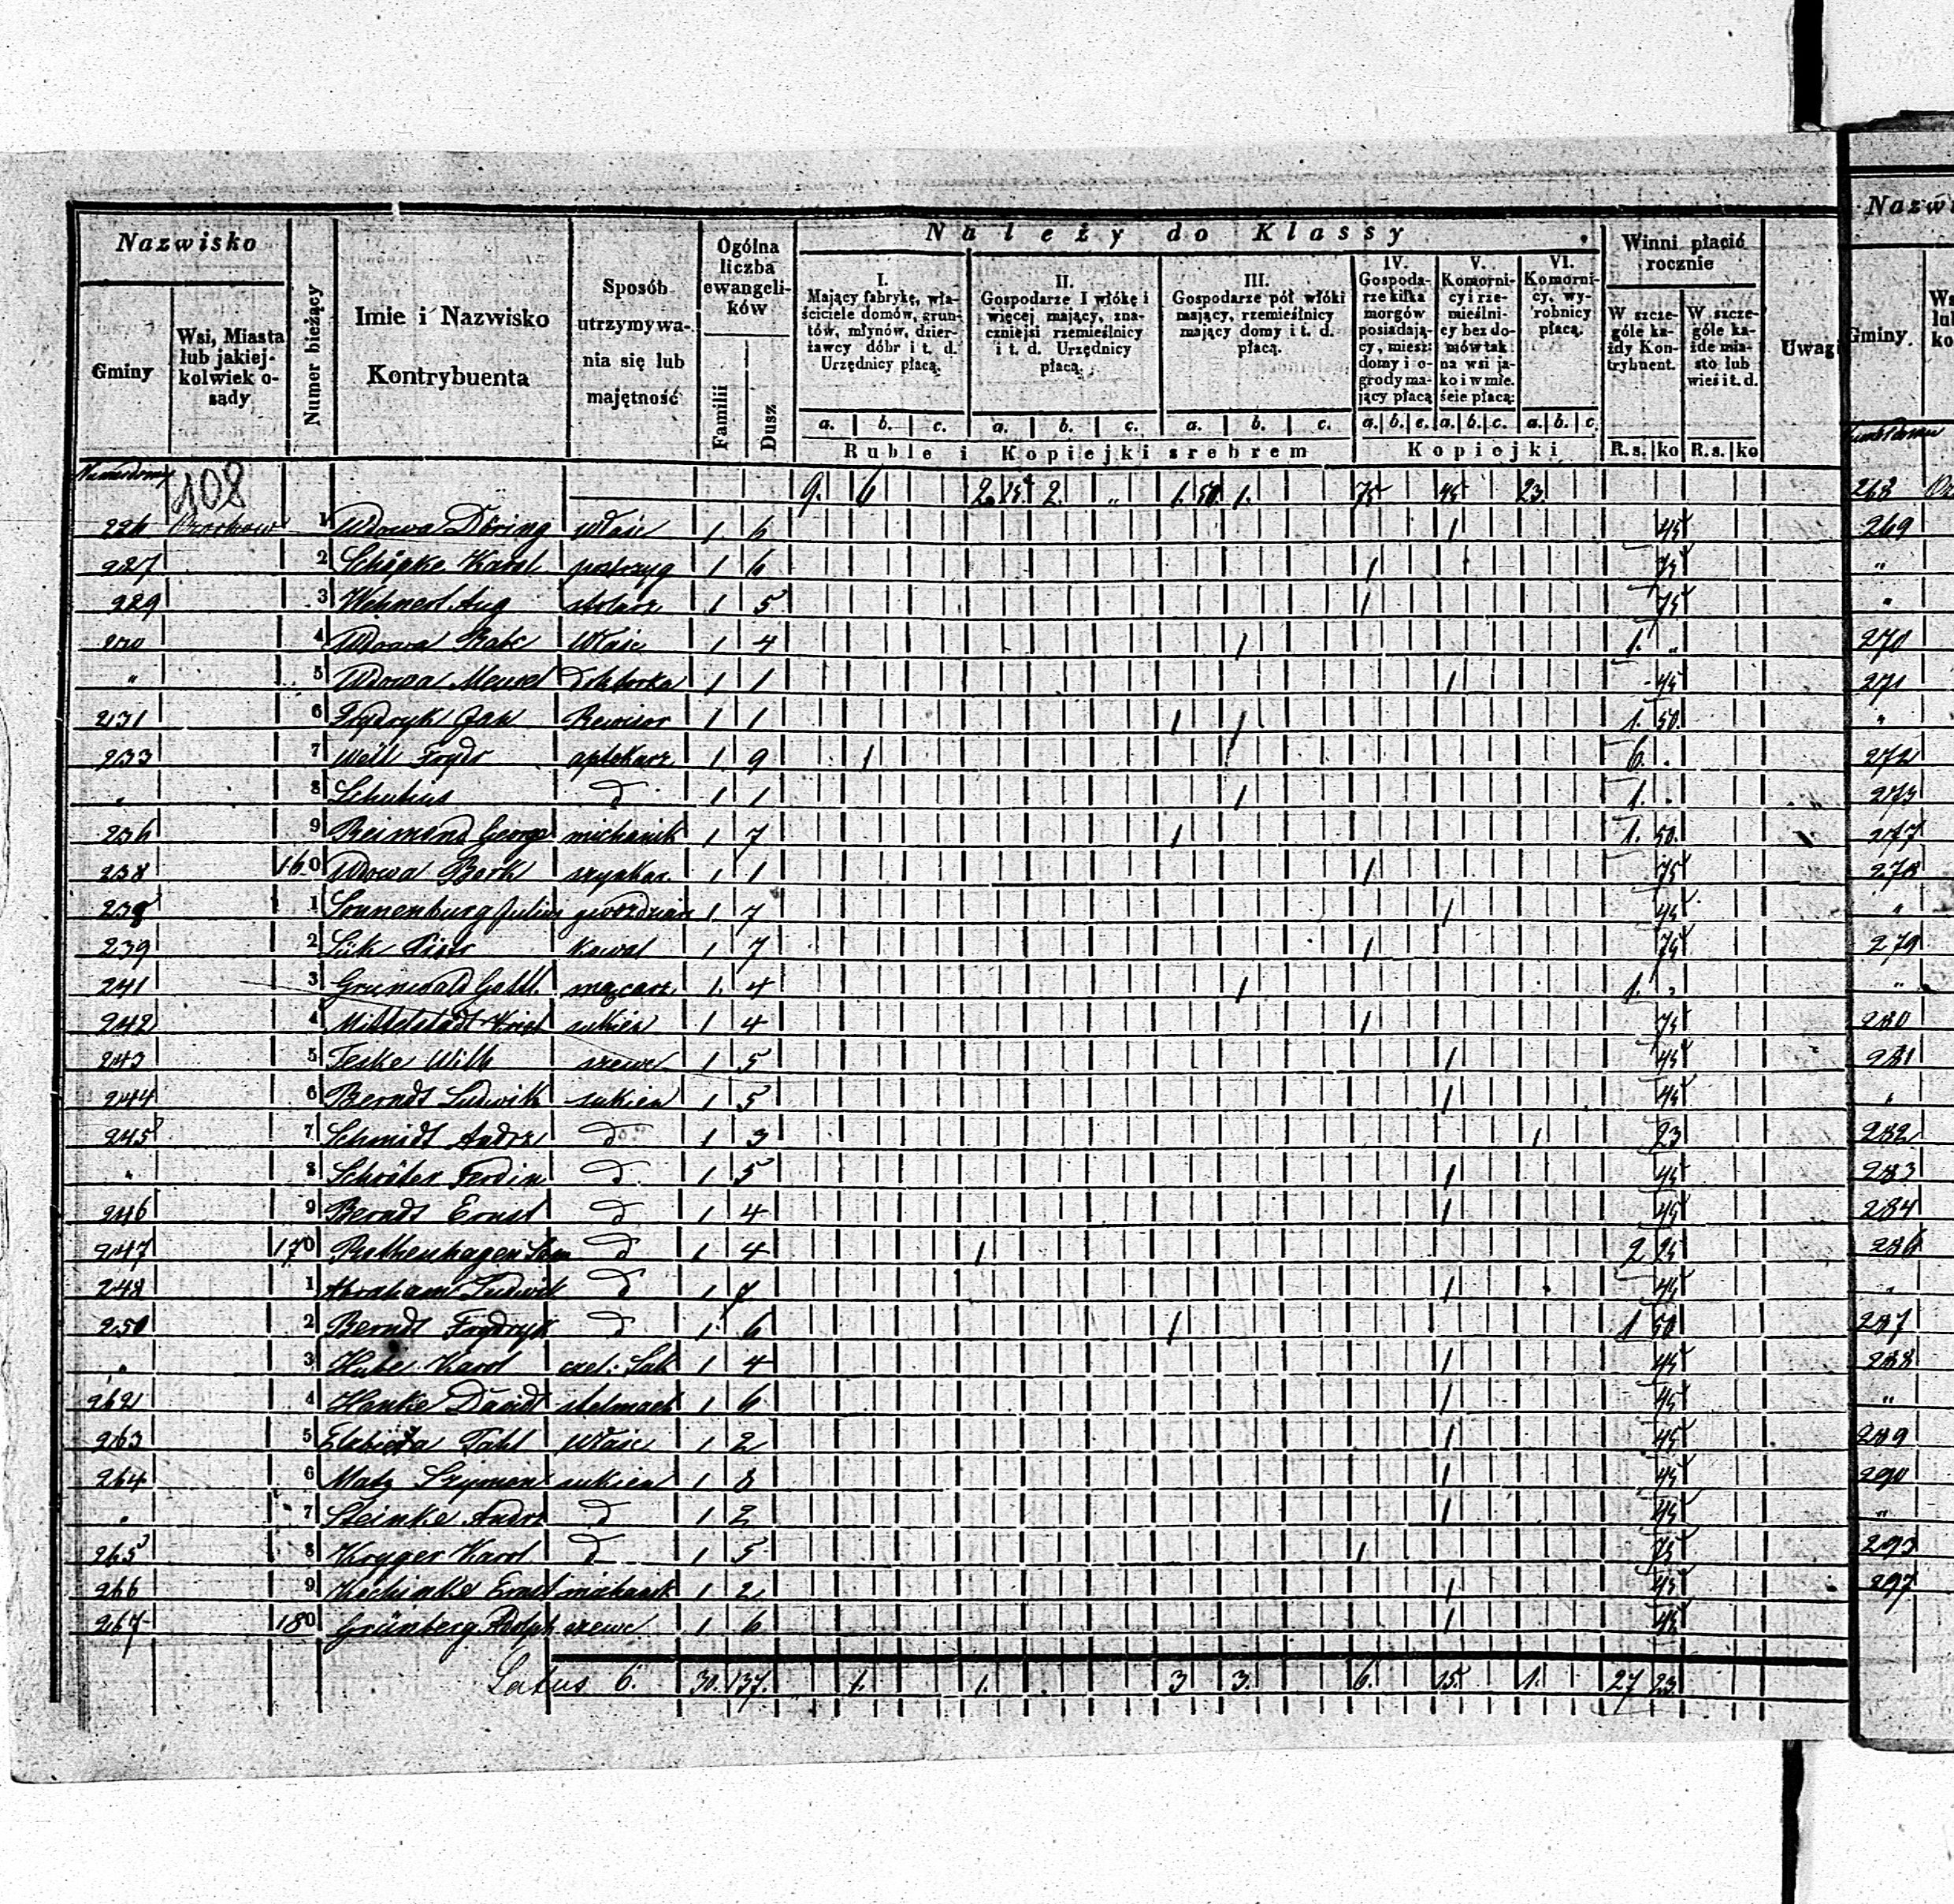 Nazwisko
Gminy
Wsi, Miasta lub jakiej-kolwiek o-sady
Numer bieżący
Imie i Nazwisko Kontrybuenta
Sposób utrzymywa-nia się lub majętność
Ogólna liczba ewangeli-ków
Familii
Dusz
Należy do Klassy
I. Mający fabrykę, wła-ściciele domów, grun-tów, młynów, dzier-żawcy dóbr i t. d. Urzędnicy płacą.
II. Gospodarze 1 włókę i więcej mający, zna-czniejsi rzemieślnicy i t. d. Urzędnicy płacą.
III. Gospodarze pół włóki mający, rzemieślnicy mający domy i t. d. płacą.
IV. Gospoda-rze kilka morgów posiadają-cy, miesz: domy i o-grody ma-jący płacą
V. Komorni-cy i rze-mieślni-cy bez do-mów tak na wsi ja-ko i w mie.ście płacą:
VI. Komorni-cy, wy-robnicy płacą.
a. b. c. a. b. c. a. b. c. a. b. c. a. b. c. a. b. c.
Ruble i Kopiejki srebrem
Kopiejki
Winni płacić rocznie
W szcze-góle ka-żdy Kon-trybuent.
W szcze-góle ka-żde mia-sto lub wieś i t. d.
R.s. ko R.s. ko
Uwagi
108
9. 6 2.25 2. " 1.50 1. 75 45 23
226 1 Wdowa Döring właśc 1 6 1 45
227 2 Schöpke Karol postrzyg 1 6 1 75
229 3 Wehnert Aug stolarz 1 5 1 75
230 4 Wdowa właśc 1 4 1 1. "
" 5 Wdowa Meusel doktorka 1 1 1 45
231 6 Frydryk Jak Rewisor 1 1 1 1 1. 50
233 7 Frydr aptekarz 1 9 1 6 .
" 8 d 1 1 1 1. .
236 9 Reimond George michanik 1 7 1 1. 50
238 160 Wdowa szynkar 1 1 1 75
238 1 Sonnenburg Julius gwoździarz 1 7 1 45
239 2 Piotr kowal 1 7 1 75
241 3 Grunwald Gottl. mączarz 1 4 1 1. "
242 4 Mittelstadt sukien 1 4 1 75
243 5 Teske Wilh szewc 1 5 1 45
244 6 Berndt Ludwik sukien 1 5 1 45
245 7 Schmidt Andrz d 1 3 1 23
" 8 Schröter Ferdin d 1 5 1 45
246 9 Berndt Ernst d 1 4 1 45
247 170 Rothenhagen Sam d 1 4 1 2 25
248 1 Abraham Ludwik d 1 7 1 45
250 2 Berndt Frydryk d 1 6 1 1 50
" 3 Karol czel: 1 4 1 45
262 4 Hanke David stelmach 1 6 1 45
263 5 Elzbieta właśc 1 2 1 45
264 6 Matz Szymon sukien 1 8 1 45
" 7 Steinke Andrz d 1 2 1 45
265 8 Kryger Karol d 1 5 1 75
266 9 Ernst michanik 1 2 1 45
267 180 Grünberg Adolph szewc 1 6 1 45
Latus 6. 30. 137. 1. 1. 3 3. 6. 15. 1. 27 23
Gminy.
268
269
"
"
270
271
"
272
273
277
278
"
279
"
280
281
"
282
283
284
286
"
287
288
"
289
290
"
293
297